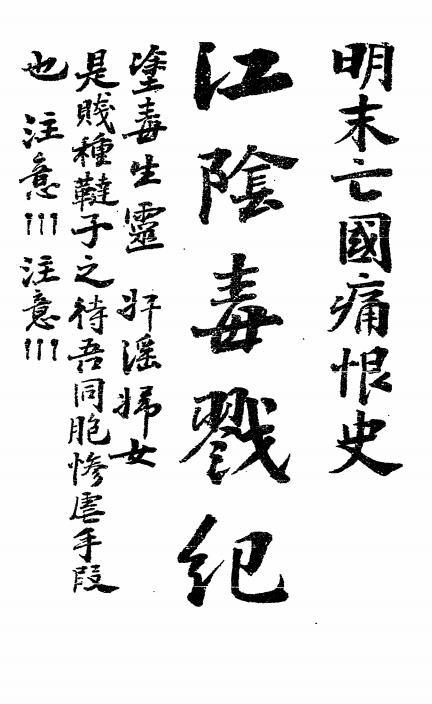 明末亡國痛恨史
江陰毒戮紀
塗毒生靈 奸淫婦女
是賤種韃子之待吾同胞慘虐手段
也 注意!!! 注意!!!